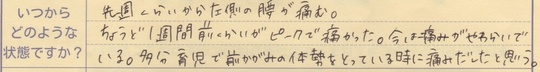 いつから
どのような
状態ですか？
先週くらいから左側の腰が痛む。
ちょうど1週間前くらいがピークで痛かった。今は痛みがやわらいで
いる。多分育児で前かがみの体勢をとっている時に痛みだしたと思う。